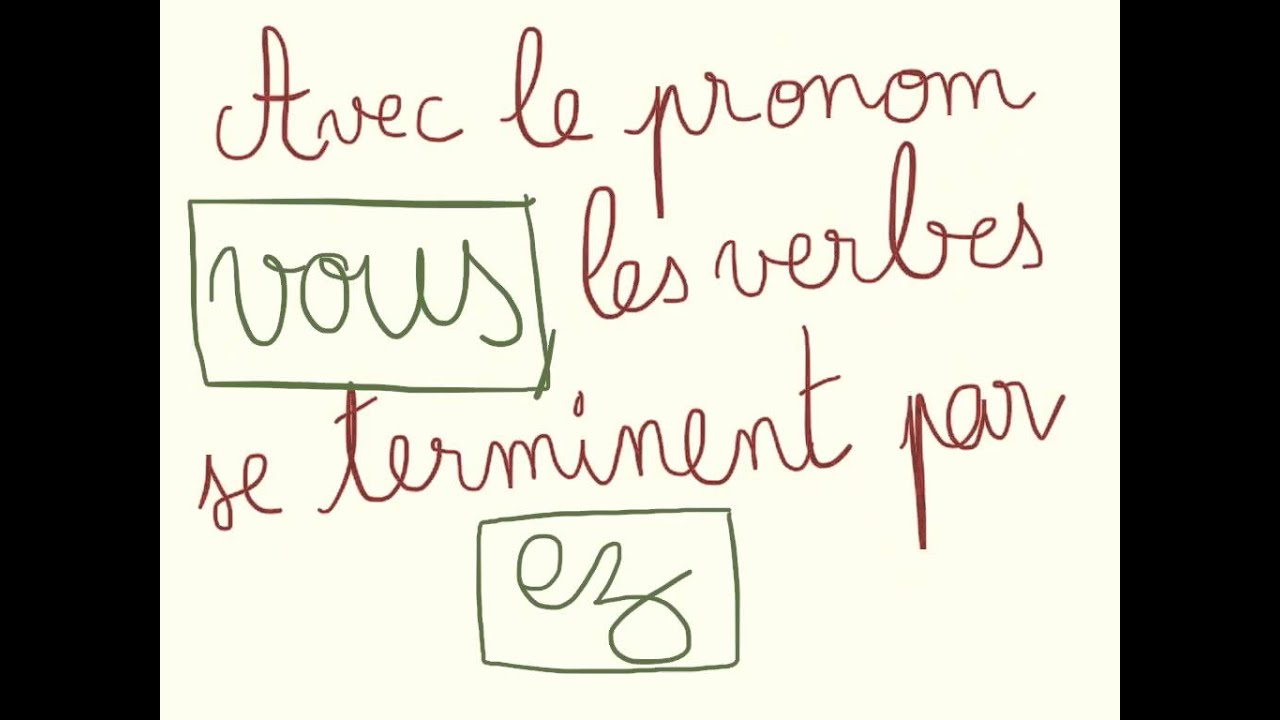 Avec le pronom
vous les verbes
se terminent par
ez